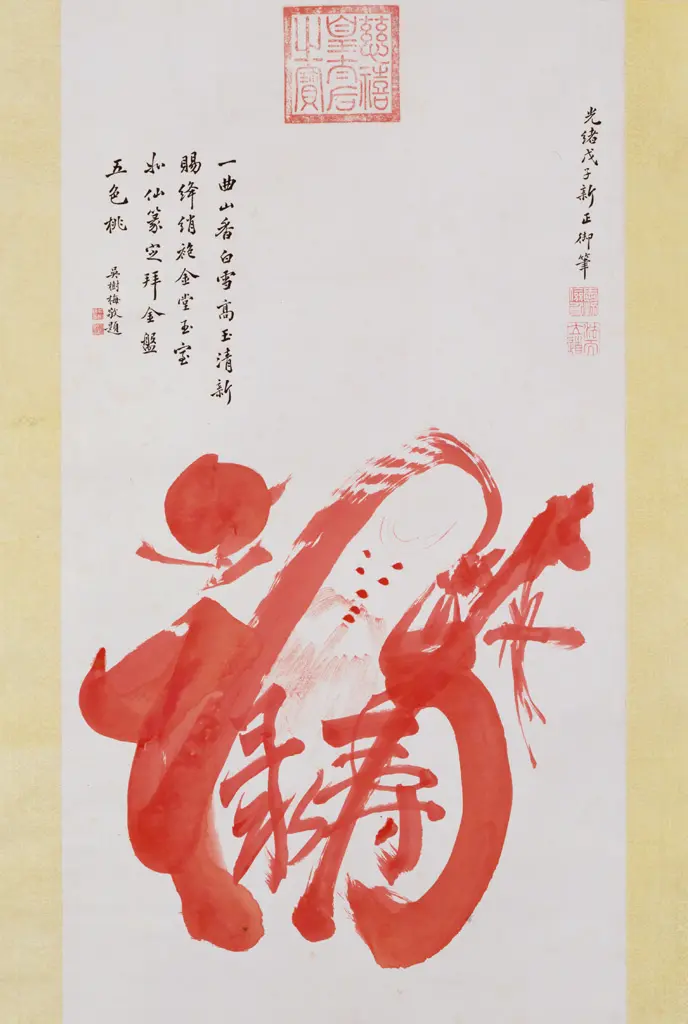 慈禧皇太后之寶
光緒戊子新正御筆
一曲山香白雪高玉清新
賜絳綃袍金堂玉室
如仙篆定拜金盤
五色桃
吳樹梅敬題
福禄寿